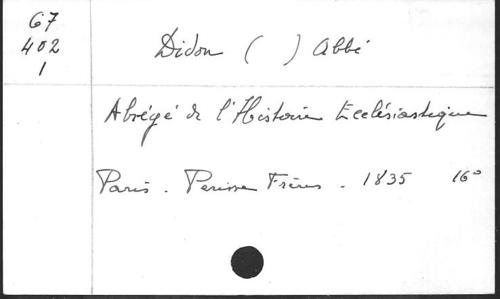 67
402
1
Didon ( ) Abbé
Abrégé de l'Histoire Ecclésiastique
Paris. Perisse Frères. 1835 16°